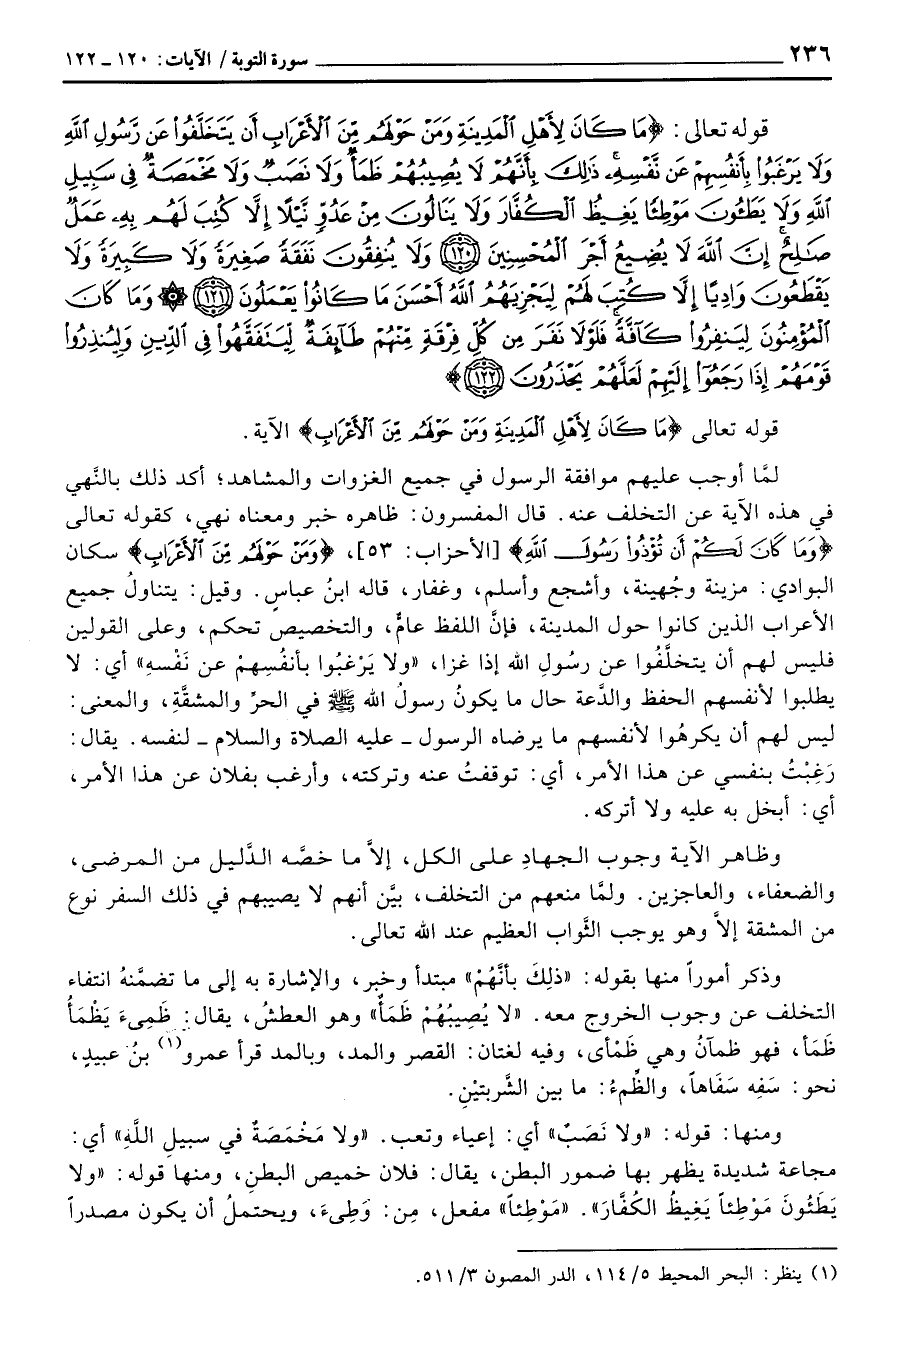 ٢٣٦ ــــــ سورة التوبة / الآيات: ١٢٠ ـ ١٢٢
قوله تعالى: ﴿مَا كَانَ لِأَهْلِ ٱلْمَدِينَةِ وَمَنْ حَوْلَهُم مِّنَ ٱلْأَعْرَابِ أَن يَتَخَلَّفُوا۟ عَن رَّسُولِ ٱللَّهِ
وَلَا يَرْغَبُوا۟ بِأَنفُسِهِمْ عَن نَّفْسِهِۦۚ ذَٰلِكَ بِأَنَّهُمْ لَا يُصِيبُهُمْ ظَمَأٌ وَلَا نَصَبٌ وَلَا مَخْمَصَةٌ فِى سَبِيلِ
ٱللَّهِ وَلَا يَطَـُٔونَ مَوْطِئًا يَغِيظُ ٱلْكُفَّارَ وَلَا يَنَالُونَ مِنْ عَدُوٍّ نَّيْلًا إِلَّا كُتِبَ لَهُم بِهِۦ عَمَلٌ
صَٰلِحٌۚ إِنَّ ٱللَّهَ لَا يُضِيعُ أَجْرَ ٱلْمُحْسِنِينَ ﴿١٢٠﴾ وَلَا يُنفِقُونَ نَفَقَةً صَغِيرَةً وَلَا كَبِيرَةً وَلَا
يَقْطَعُونَ وَادِيًا إِلَّا كُتِبَ لَهُمْ لِيَجْزِيَهُمُ ٱللَّهُ أَحْسَنَ مَا كَانُوا۟ يَعْمَلُونَ ﴿١٢١﴾ ۞ وَمَا كَانَ
ٱلْمُؤْمِنُونَ لِيَنفِرُوا۟ كَآفَّةًۚ فَلَوْلَا نَفَرَ مِن كُلِّ فِرْقَةٍ مِّنْهُمْ طَآئِفَةٌ لِّيَتَفَقَّهُوا۟ فِى ٱلدِّينِ وَلِيُنذِرُوا۟
قَوْمَهُمْ إِذَا رَجَعُوٓا۟ إِلَيْهِمْ لَعَلَّهُمْ يَحْذَرُونَ ﴿١٢٢﴾﴾
قوله تعالى ﴿مَا كَانَ لِأَهْلِ ٱلْمَدِينَةِ وَمَنْ حَوْلَهُم مِّنَ ٱلْأَعْرَابِ﴾ الآية.
لمَّا أوجب عليهم موافقة الرسول في جميع الغزوات والمشاهد؛ أكد ذلك بالنَّهي
في هذه الآية عن التخلف عنه. قال المفسرون: ظاهره خبر ومعناه نهي، كقوله تعالى
﴿وَمَا كَانَ لَكُمْ أَن تُؤْذُوا۟ رَسُولَ ٱللَّهِ﴾ [الأحزاب: ٥٣]، ﴿وَمَنْ حَوْلَهُم مِّنَ ٱلْأَعْرَابِ﴾ سكان
البوادي: مزينة وجُهينة، وأشجع وأسلم، وغفار، قاله ابنُ عباسٍ. وقيل: يتناولُ جميع
الأعراب الذين كانوا حول المدينة، فإنَّ اللفظ عامٌّ، والتخصيص تحكم، وعلى القولين
فليس لهم أن يتخلَّفُوا عن رسُولِ الله إذا غزا، «ولا يَرْغبُوا بأنفُسِهِمْ عن نَفْسِهِ» أي: لا
يطلبوا لأنفسهم الحفظ والدَّعة حال ما يكونُ رسولُ الله ﷺ في الحرِّ والمشقَّةِ، والمعنى:
ليس لهم أن يكرهُوا لأنفسهم ما يرضاه الرسول ـ عليه الصلاة والسلام ـ لنفسه. يقال:
رَغِبْتُ بنفسي عن هذا الأمر، أي: توقفتُ عنه وتركته، وأرغب بفلان عن هذا الأمر،
أي: أبخل به عليه ولا أتركه.
وظاهر الآية وجوب الجهادِ على الكل، إلاَّ ما خصَّه الدَّليل من المرضى،
والضعفاء، والعاجزين. ولمَّا منعهم من التخلف، بيَّن أنهم لا يصيبهم في ذلك السفر نوع
من المشقة إلاَّ وهو يوجب الثَّواب العظيم عند الله تعالى.
وذكر أموراً منها بقوله: «ذلِكَ بأنَّهُمْ» مبتدأ وخبر، والإشارة به إلى ما تضمَّنهُ انتفاء
التخلف عن وجوب الخروج معه. «لا يُصِيبُهُمْ ظَمأٌ» وهو العطشُ، يقال: ظَمِىءَ يَظْمَأُ
ظَمَأ، فهو ظمآنُ وهي ظَمْأى، وفيه لغتان: القصر والمد، وبالمد قرأ عمرو(١) بنُ عبيدٍ،
نحو: سَفِه سَفَاهاً، والظِّمءُ: ما بين الشَّربتيْنِ.
ومنها: قوله: «ولا نَصَبٌ» أي: إعياء وتعب. «ولا مَخْمَصَةٌ في سبيلِ اللَّهِ» أي:
مجاعة شديدة يظهر بها ضمور البطن، يقال: فلان خميص البطنِ، ومنها قوله: «ولا
يَطَئُونَ مَوْطِئاً يَغِيظُ الكُفَّارَ». «مَوْطِئاً» مفعل، مِن: وَطِىءَ، ويحتملُ أن يكون مصدراً
(١) ينظر: البحر المحيط ٥/١١٤، الدر المصون ٣/٥١١.